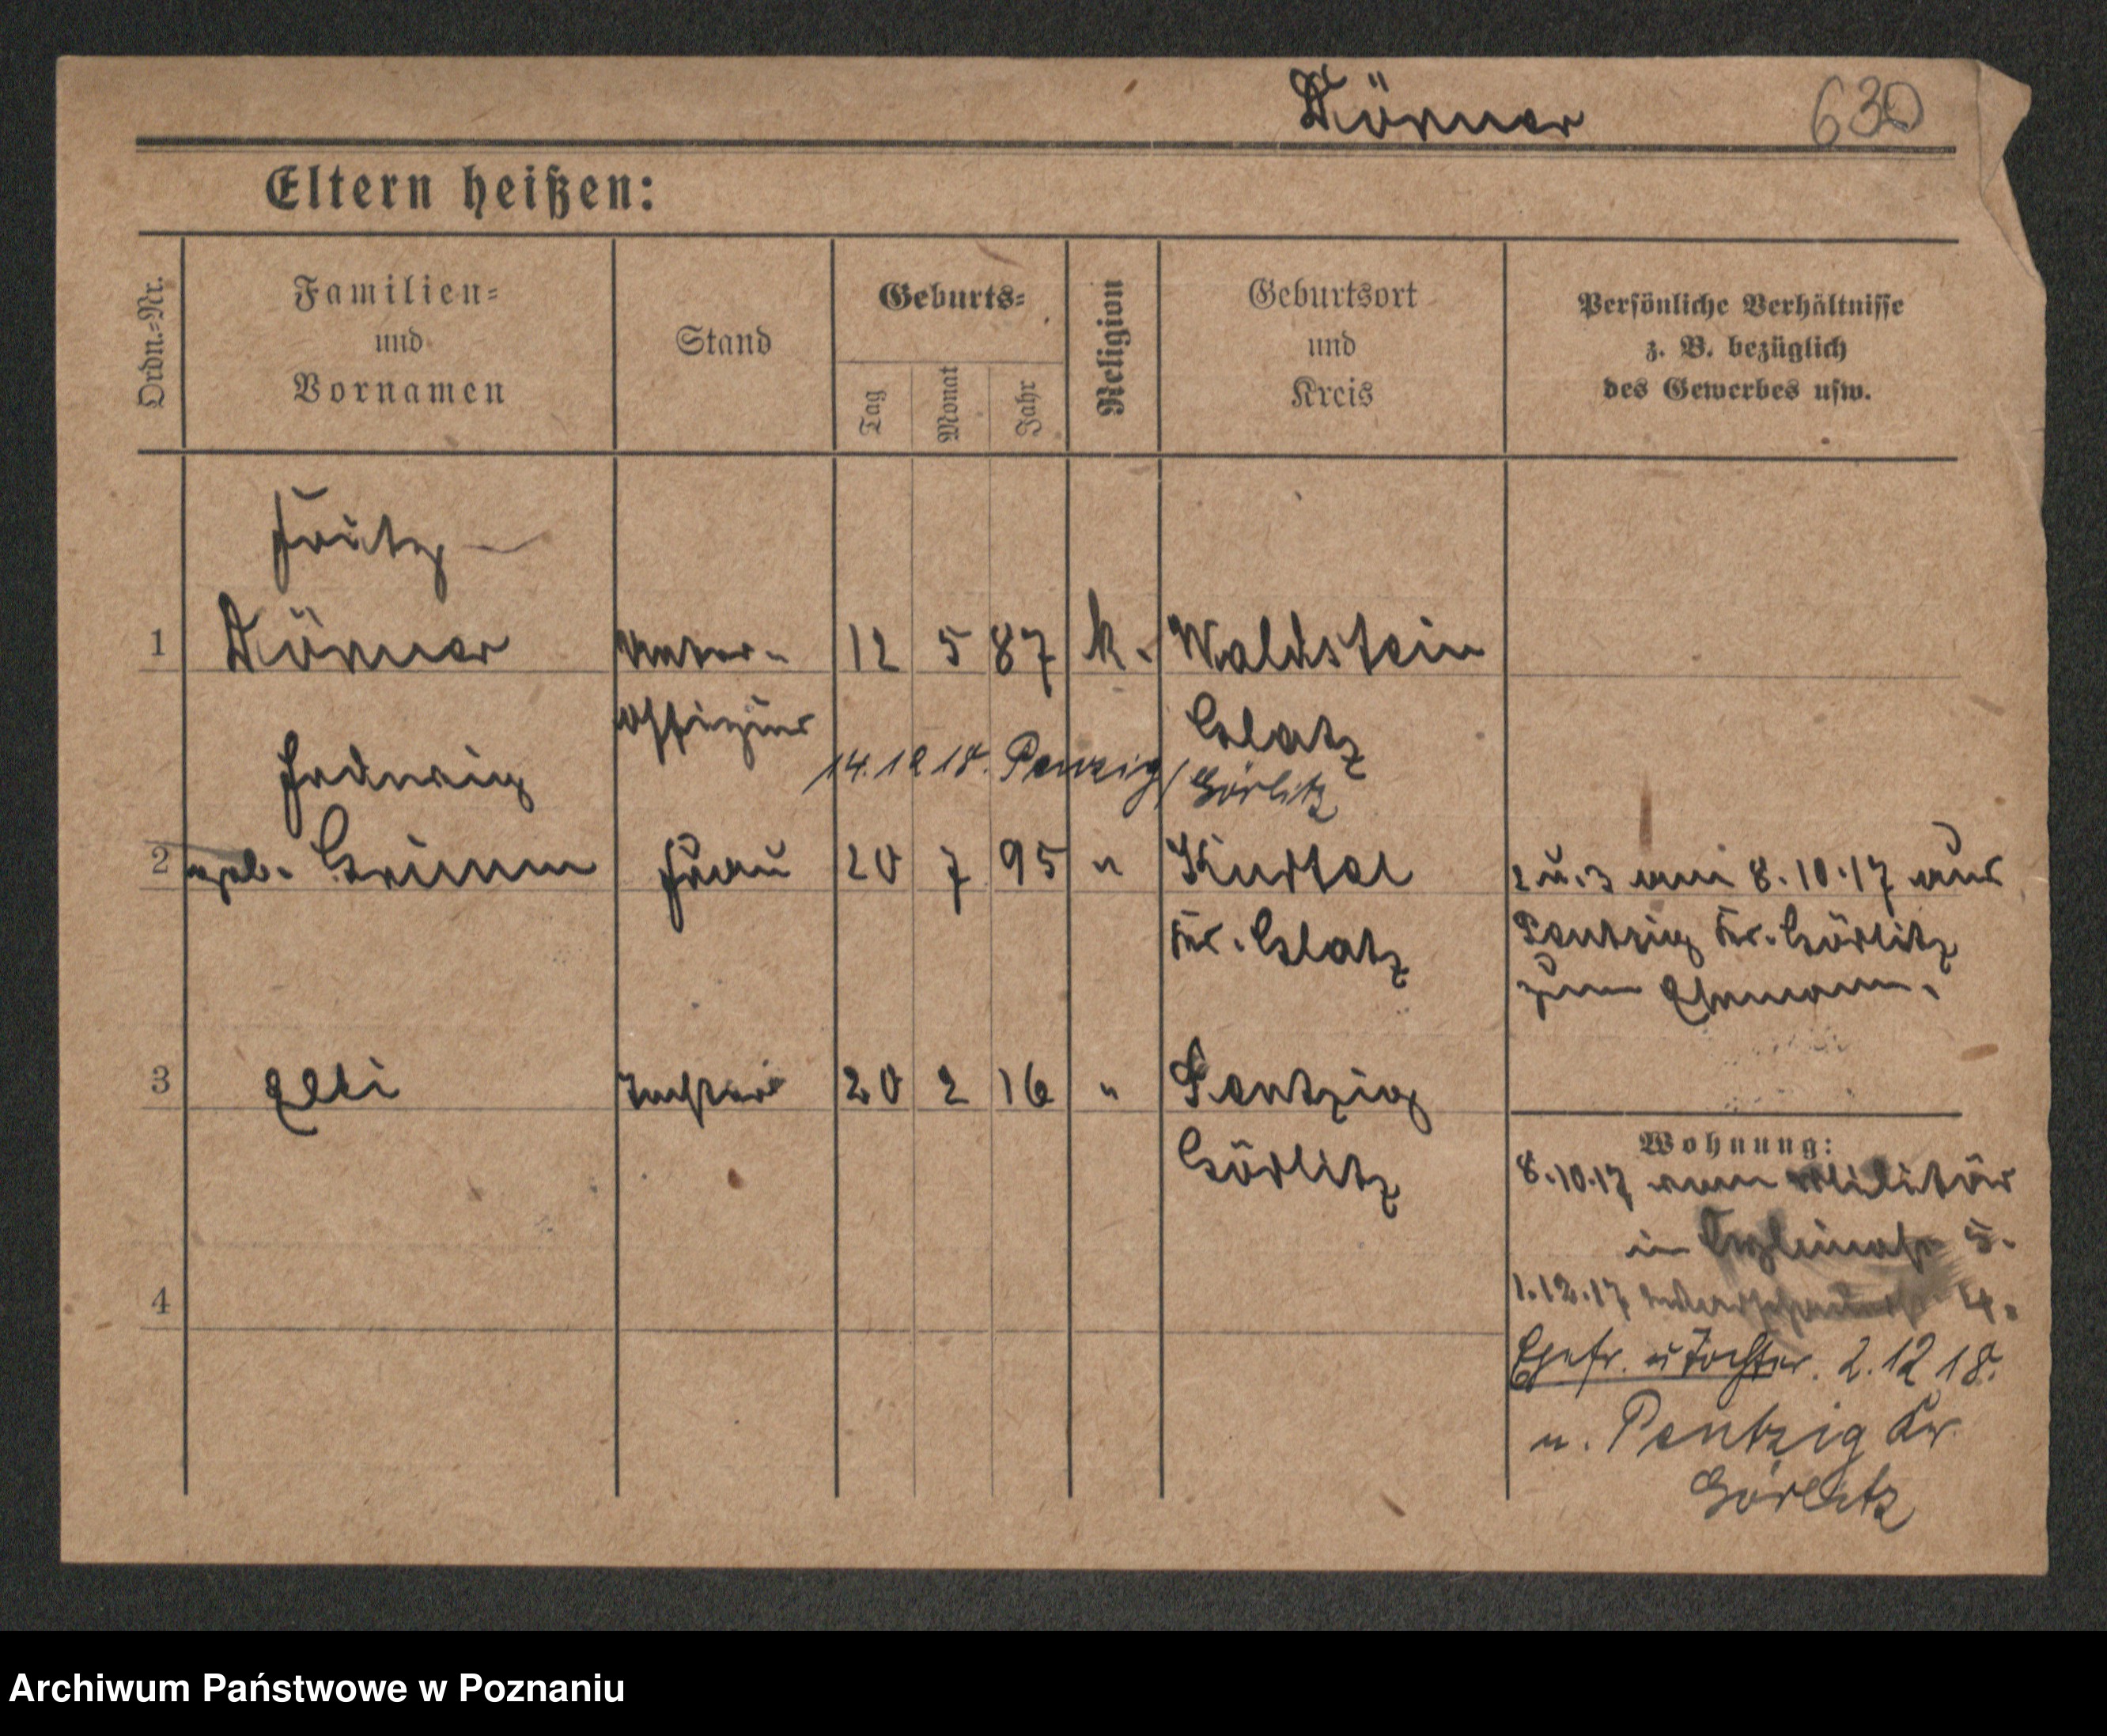 Dörner 630
Eltern heißen:
Ordn.=Nr.
Familien=
und
Vornamen
Stand
Geburts=
Tag
Monat
Jahr
Religion
Geburtsort
und
Kreis
Persönliche Verhältnisse
z. B. bezüglich
des Gewerbes usw.
Fritz
1 Dörner Unter- 12 5 87 k. Waldstein
offizier Glatz
14.12 18. Penzig/Görlitz
Hedwig
2 geb. Grimm Frau 20 7 95 " 2 u. 3 am 8.10.17 aus
Kr. Glatz Pentzig Kr. Görlitz
zum Ehemann.
3 Elli Tochter 20 2 16 " Pentzig
Görlitz
Wohnung:
8.10.17 vom Militär
in 5.
4 1.12.17 4.
Ehefr. u Tochter. 2.12 18.
n. Pentzig Kr.
Görlitz
Archiwum Państwowe w Poznaniu